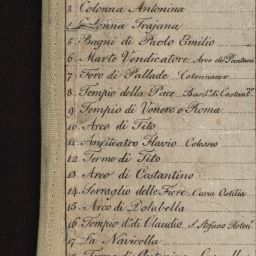 3. Colonna Antonina
Colonna Trajana
5. Bagni di Paolo Emilio
6. Marte Vendicatore Arco de Pantani
7. Foro di Pallade Colonnacce
8. Tempio della Pace Basil.ª di Costant.º
9. Tempio di Venere e Roma
10. Arco di Tito
11. Anfiteatro Flavio Colosseo
12. Terme di Tito
13. Arco di Costantino
14. Serraglio delle Fiere Curia Ostilia
15. Arco di Dolabella
16. Tempio d.º di Claudio S. Stefano Roton.º
17. La Navicella